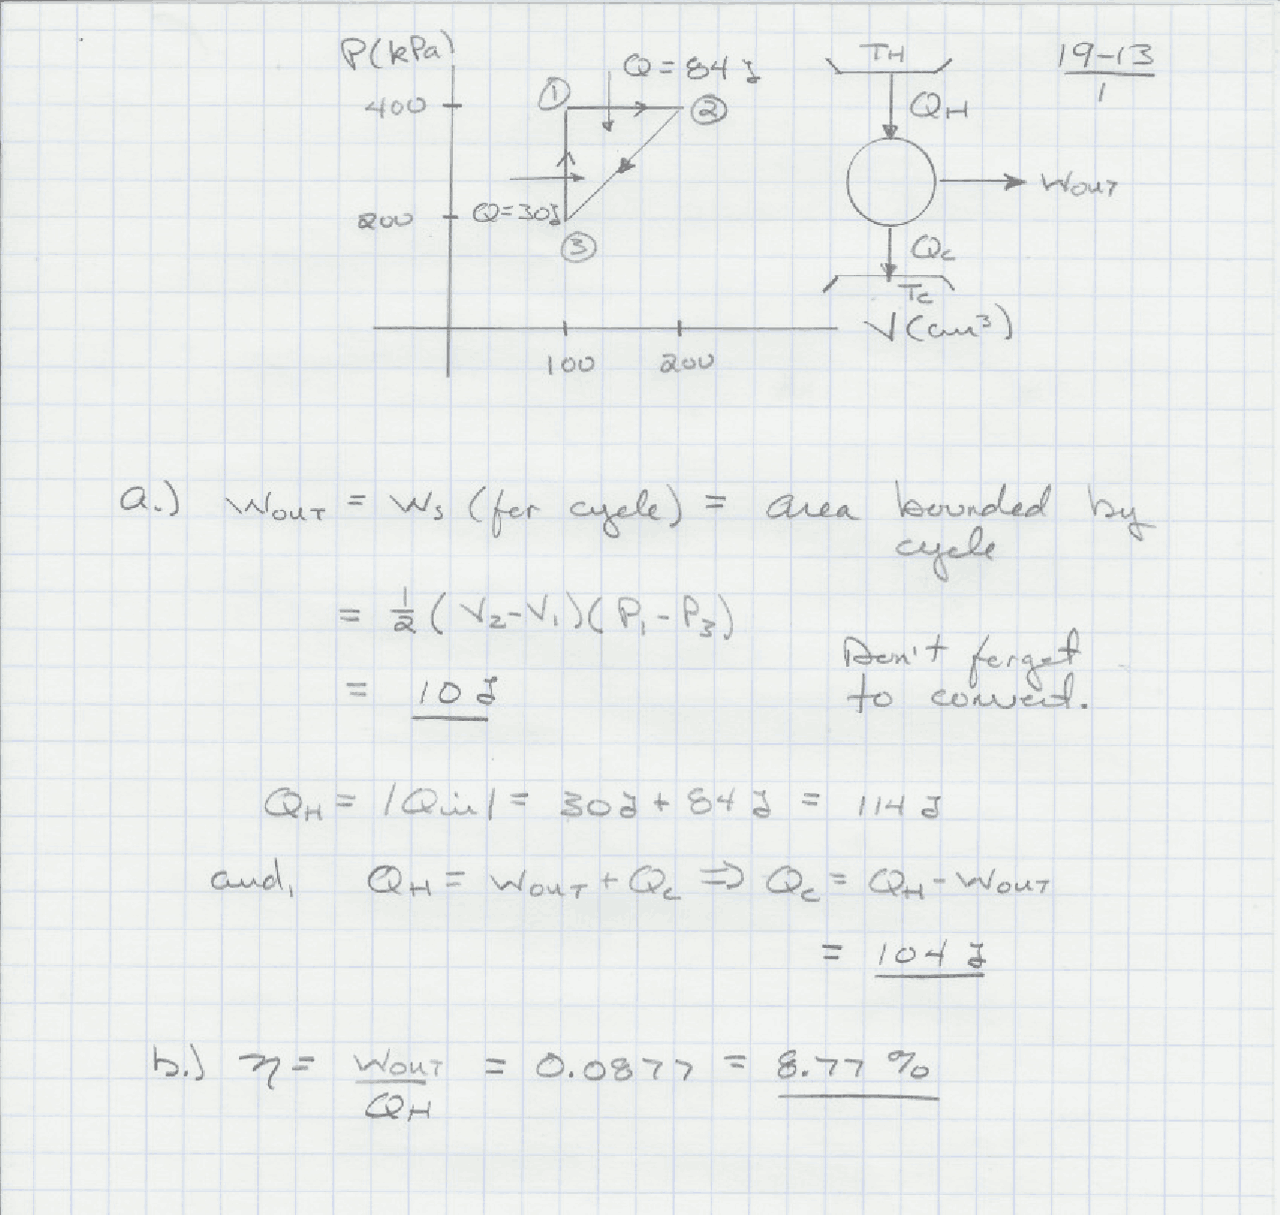 P(kPa)
400
200
100
200
V(cm³)
①
②
③
Q = 84 J
Q = 30J
TH
QH
WOUT
Qc
Tc
19-13
1
a.) WOUT = Ws (for cycle) = area bounded by
cycle
= 1/2 (V2-V1)(P1-P3)
= 10 J
Don't forget
to convert.
QH = |Qin| = 30J + 84 J = 114 J
and, QH = WOUT + Qc ⇒ Qc = QH - WOUT
= 104 J
b.) η = WOUT/QH = 0.0877 = 8.77 %